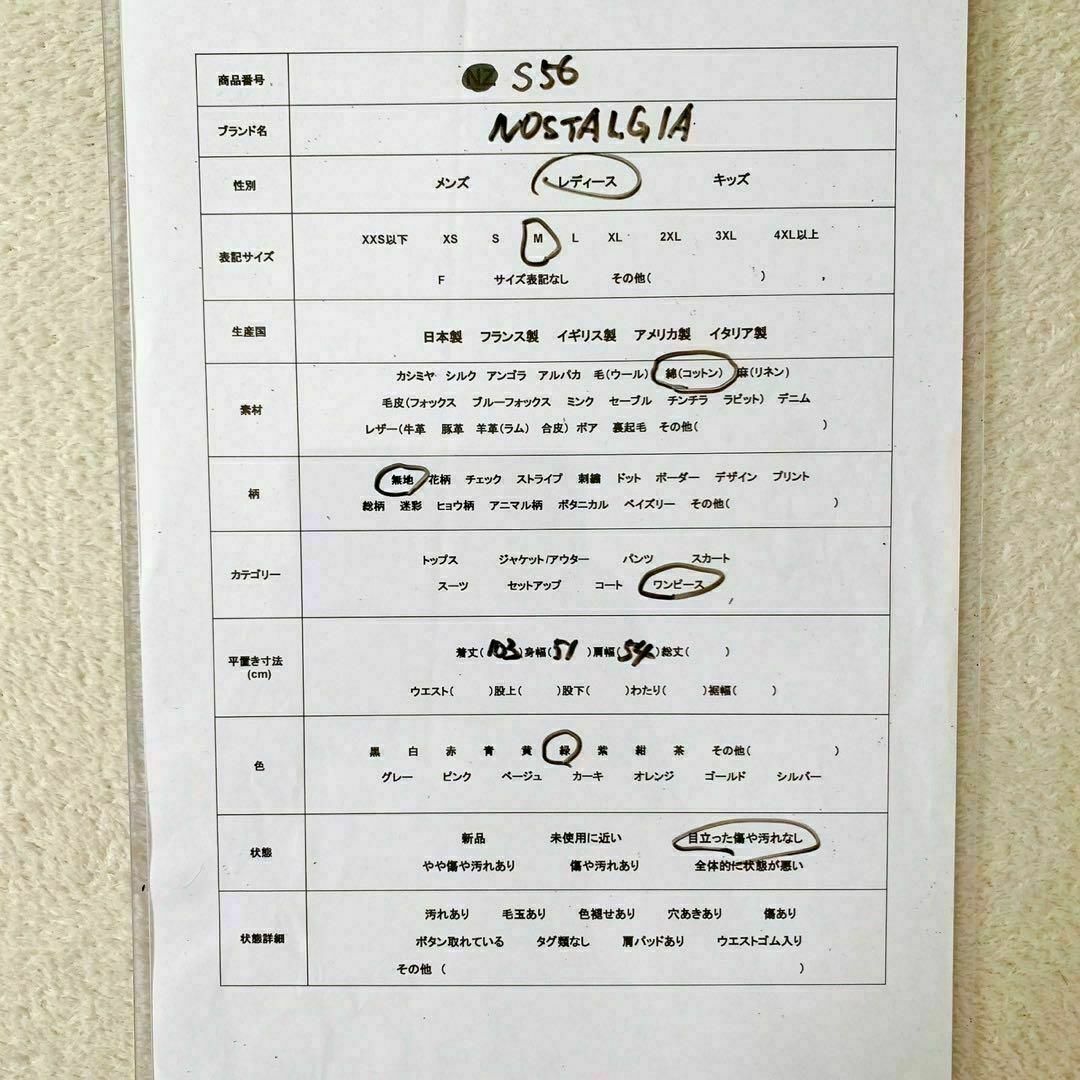 商品番号 NZ S56
ブランド名 NOSTALGIA
性別 メンズ レディース キッズ
表記サイズ
XXS以下 XS S M L XL 2XL 3XL 4XL以上
F サイズ表記なし その他( )
生産国 日本製 フランス製 イギリス製 アメリカ製 イタリア製
素材
カシミヤ シルク アンゴラ アルパカ 毛(ウール) 綿(コットン) 麻(リネン)
毛皮(フォックス ブルーフォックス ミンク セーブル チンチラ ラビット) デニム
レザー(牛革 豚革 羊革(ラム) 合皮) ボア 裏起毛 その他( )
柄
無地 花柄 チェック ストライプ 刺繍 ドット ボーダー デザイン プリント
総柄 迷彩 ヒョウ柄 アニマル柄 ボタニカル ペイズリー その他( )
カテゴリー
トップス ジャケット/アウター パンツ スカート
スーツ セットアップ コート ワンピース
平置き寸法
(cm)
着丈(103)身幅(51)肩幅(54)総丈( )
ウエスト( )股上( )股下( )わたり( )裾幅( )
色
黒 白 赤 青 黄 緑 紫 紺 茶 その他( )
グレー ピンク ベージュ カーキ オレンジ ゴールド シルバー
状態
新品 未使用に近い 目立った傷や汚れなし
やや傷や汚れあり 傷や汚れあり 全体的に状態が悪い
状態詳細
汚れあり 毛玉あり 色褪せあり 穴あきあり 傷あり
ボタン取れている タグ類なし 肩パッドあり ウエストゴム入り
その他 ( )